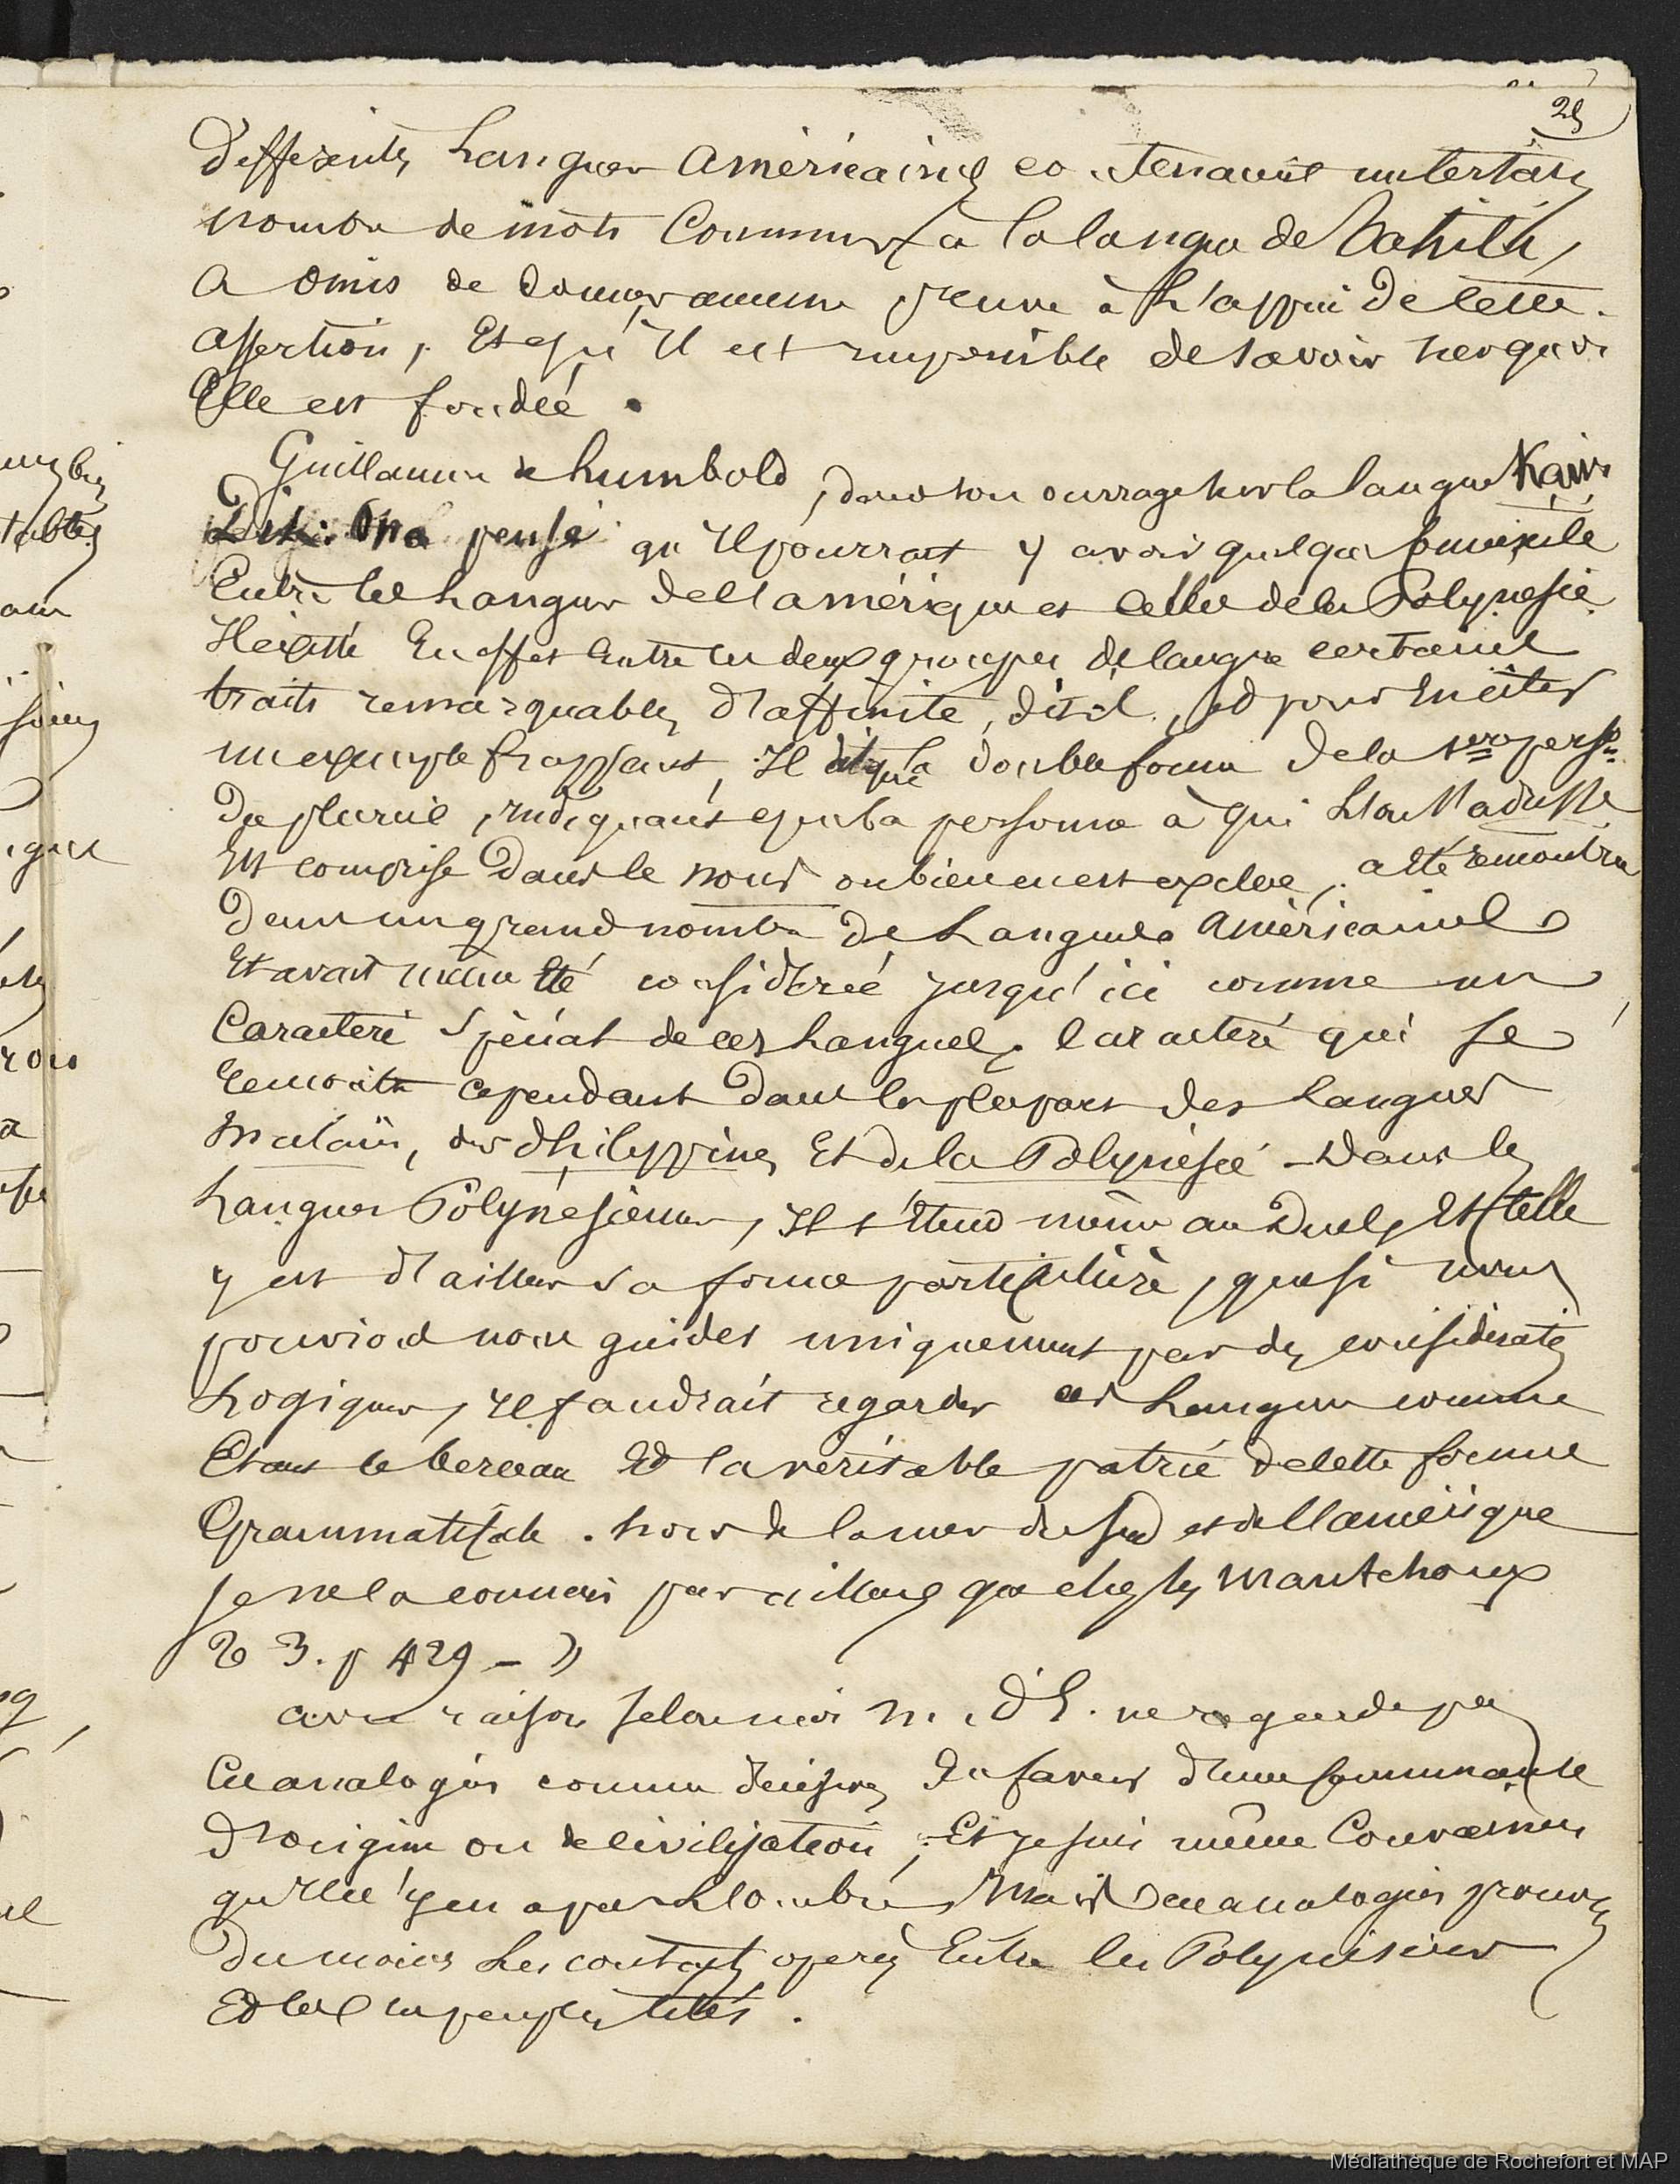 25
différents Langues américaines contenaient un certain
nombre de mots communs à la langue de Tahiti,
a omis de donner aucune preuve à l'appui de cette
assertion, et qu'il est impossible de savoir sur quoi
Elle est fondée.
Guillaume de humbold, dans son ouvrage sur la langue Kawi
a pensé qu'il pourrait y avoir quelque
Entre les Langues de l'amérique et celles de la Polynésie
Il existe En effet Entre ces deux groupes de langue certains
traits remarquables d'affinité, dit-il, et pour En citer
un exemple frappant, Il dit que la double forme de la 1ere perso.
Du pluriel, indiquant que la personne à qui l'on s'adresse
Est comprise dans le nous ou bien en est exclue, a été rencontrée
Dans un grand nombre de Langues américaines
Et avait même été considérée jusqu'ici comme un
Caractère spécial de ces Langues, caractère qui se
rencontre cependant dans la plupart des Langues
Malais, des Philippines Et de la Polynésie - Dans les
Langues Polynésiennes, Il s'étend même au Duel, Et telle
y est d'ailleurs sa forme particulière, que si nous
pouvions nous guider uniquement par des considérations
Logiques, il faudrait regarder ces Langues comme
Étant le berceau Et la véritable patrie de cette forme
Grammaticale. hors de la mer du Sud et de l'amérique
je ne la connais par ailleurs que chez les Mantchoux
To 3. p 429 - »
avec raison selon moi M. d'E. ne regarde pas
Ces analogies comme décisives En faveur d'une communauté
D'origine ou de civilisation, Et je suis même Convaincu
qu'il n'y en a pas l'ombre, Mais ces analogies prouvent
Du moins Les contacts opérés Entre les Polynésiens
Et les peuples cités.
Médiathèque de Rochefort et MAP